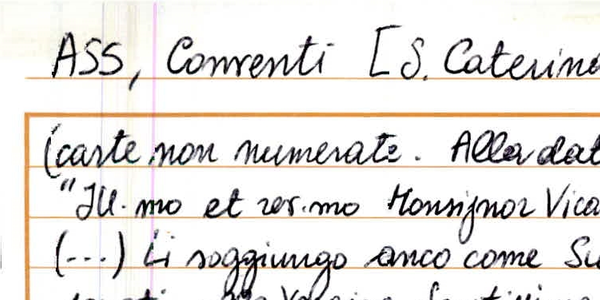 ASS, Conventi [S. Caterina
(carte non numerate. Alla dat
"Ill.mo et rev.mo Monsignor Vica
(...) Li soggiungo anco come Su